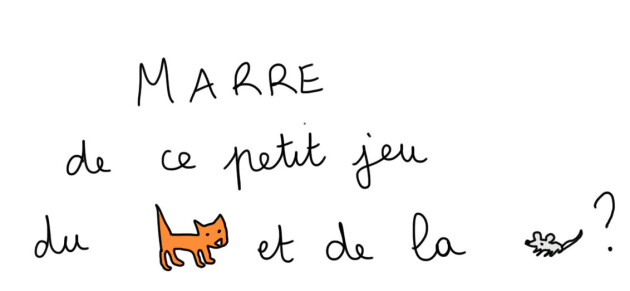 MARRE
de ce petit jeu
du et de la ?